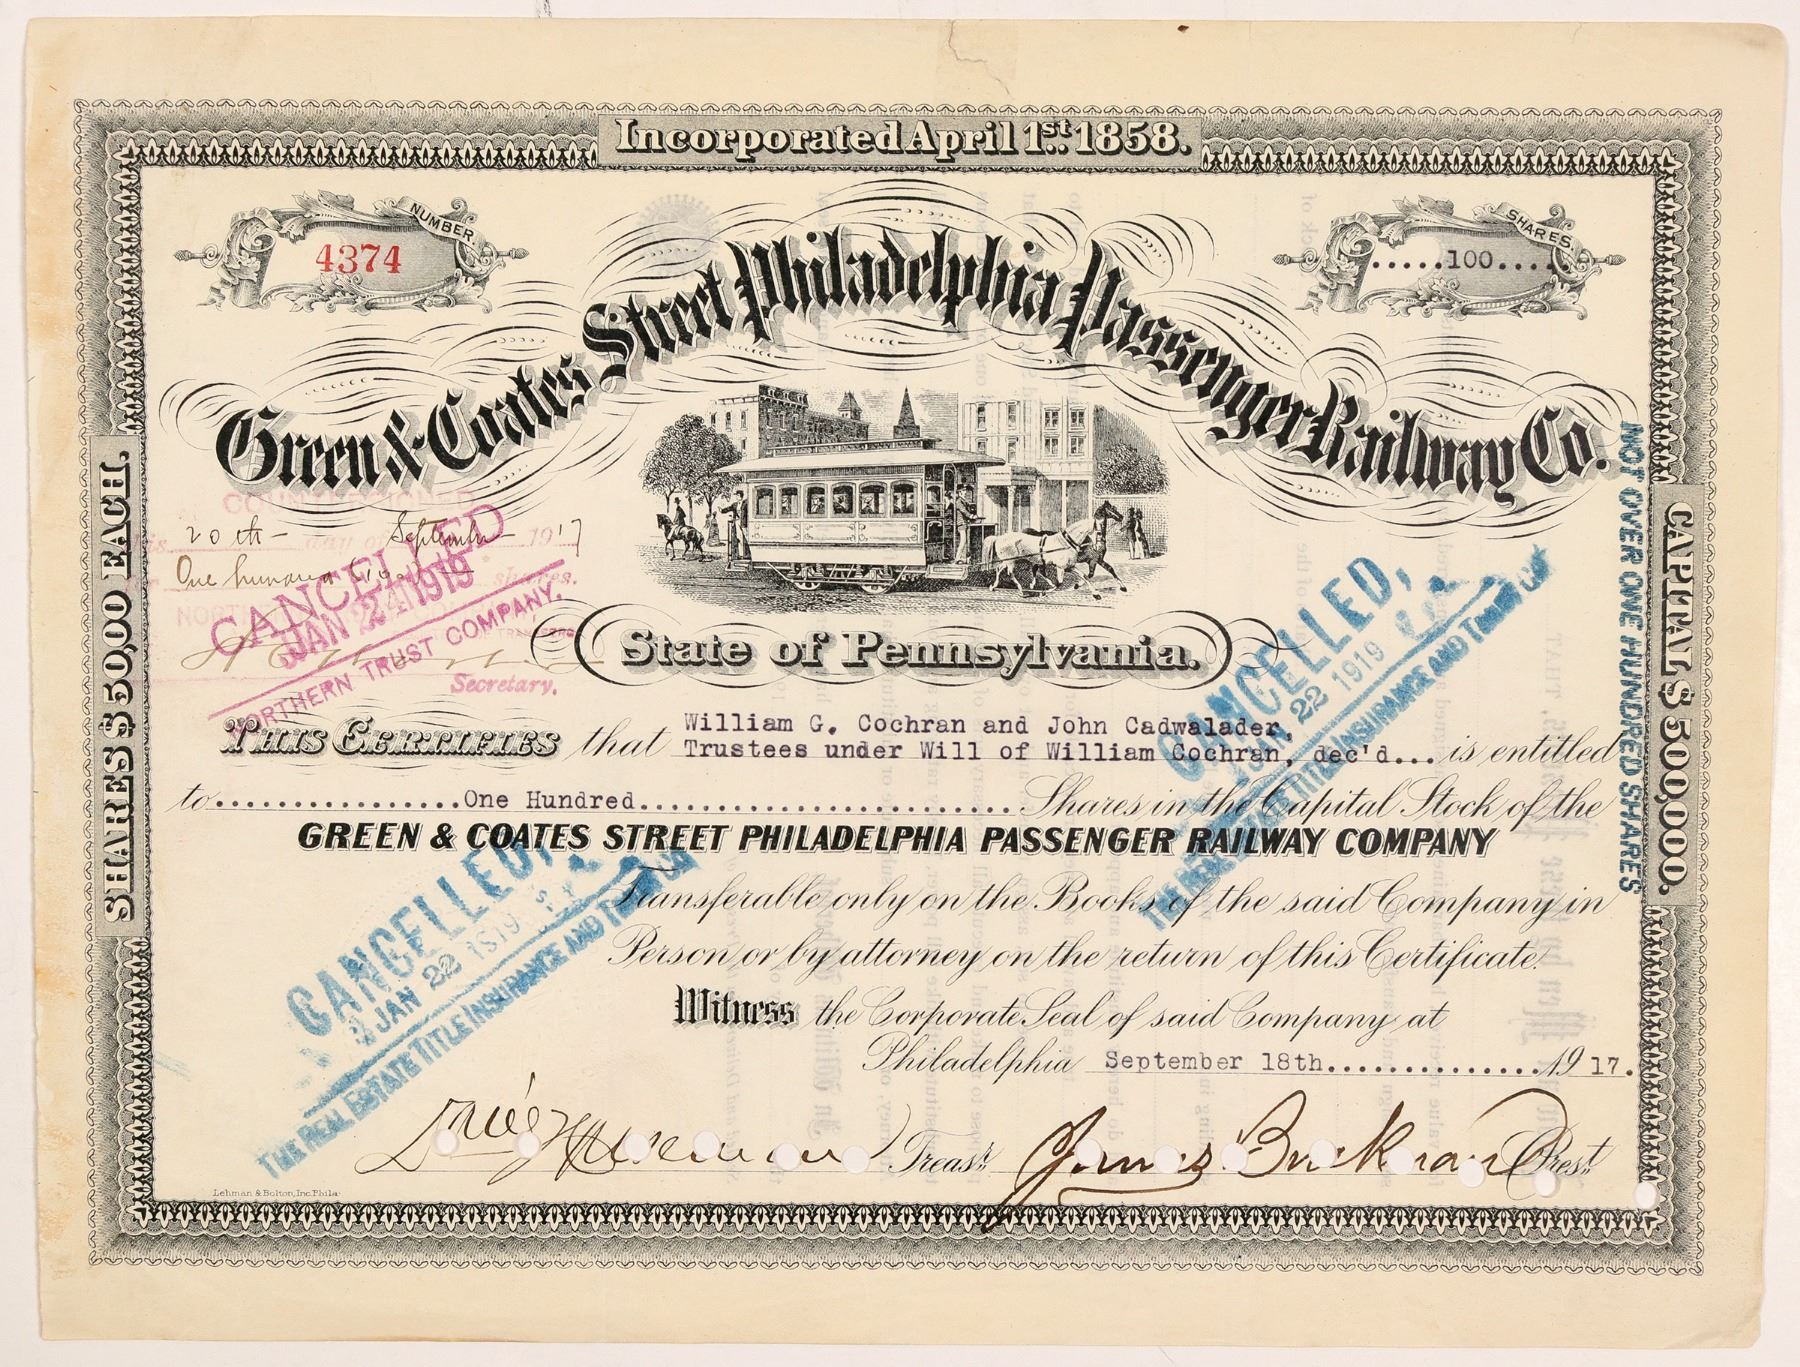 Incorporated April 1st 1858.
NUMBER.
4374
SHARES.
.....100.....
Green & Coates Street Philadelphia Passenger Railway Co.
SHARES $50,00 EACH.
CAPITAL $500,000.
NOT OVER ONE HUNDRED SHARES
COUNTERSIGNED
20th September 1917
One hundred shares.
CANCELLED
JAN 24 1919
NORTHERN TRUST COMPANY.
Secretary.
State of Pennsylvania.
CANCELLED,
JAN 22 1919
THE REAL ESTATE TITLE INSURANCE AND TRUST CO.
THIS CERTIFIES that William G. Cochran and John Cadwalader,
Trustees under Will of William Cochran, dec'd... is entitled
to.................One Hundred.......................... Shares in the Capital Stock of the
GREEN & COATES STREET PHILADELPHIA PASSENGER RAILWAY COMPANY
Transferable only on the Books of the said Company in
Person or by attorney on the return of this Certificate.
CANCELLED,
JAN 22 1919
THE REAL ESTATE TITLE INSURANCE AND TRUST CO.
Witness the Corporate Seal of said Company at
Philadelphia September 18th...............1917.
Treasr.
James Buckman Prest.
Lehman & Bolton, Inc. Phila